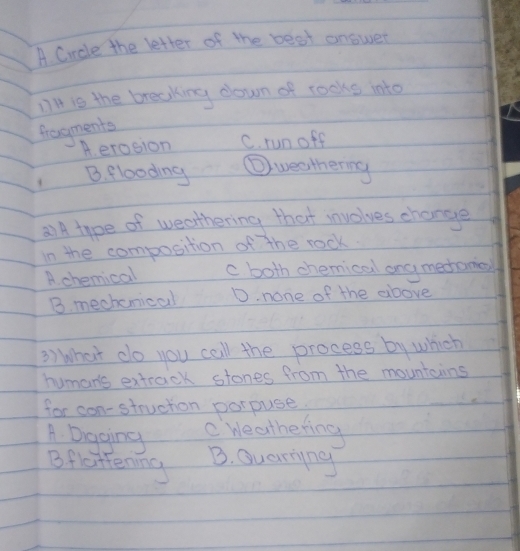 A Circle the letter of the best answer
1) It is the breaking down of rocks into
fragments
A. erosion C. run off
B. flooding D weathering
2) A type of weathering that involves change
in the composition of the rock.
A. chemical C both chemical ang mechanical
B. mechanical D. none of the above
3) What do you call the process by which
humans extrack stones from the mountains
for con-struction porpuse.
A. Digging C Weathering
B. flattening B. Quarrying